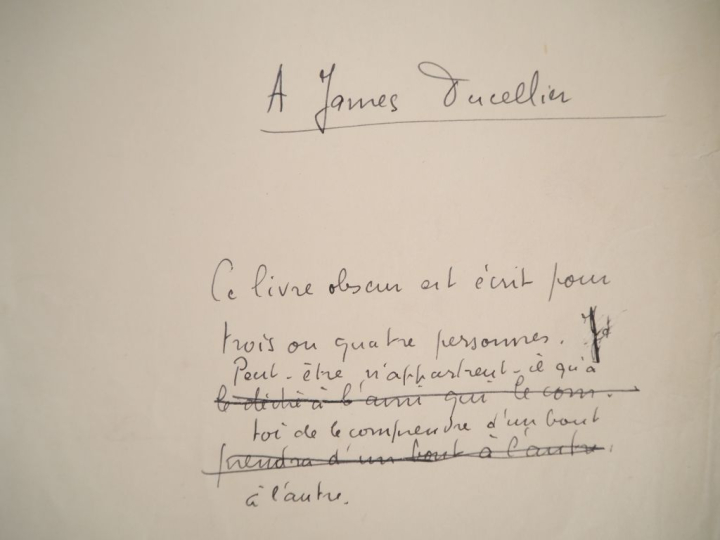 A James Ducellier
Ce livre obscur est écrit pour
trois ou quatre personnes. Je
Peut-être n'appartient-il qu'à
le dédie à l'ami qui le com-
toi de le comprendre d'un bout
prendra d'un bout à l'autre.
à l'autre.